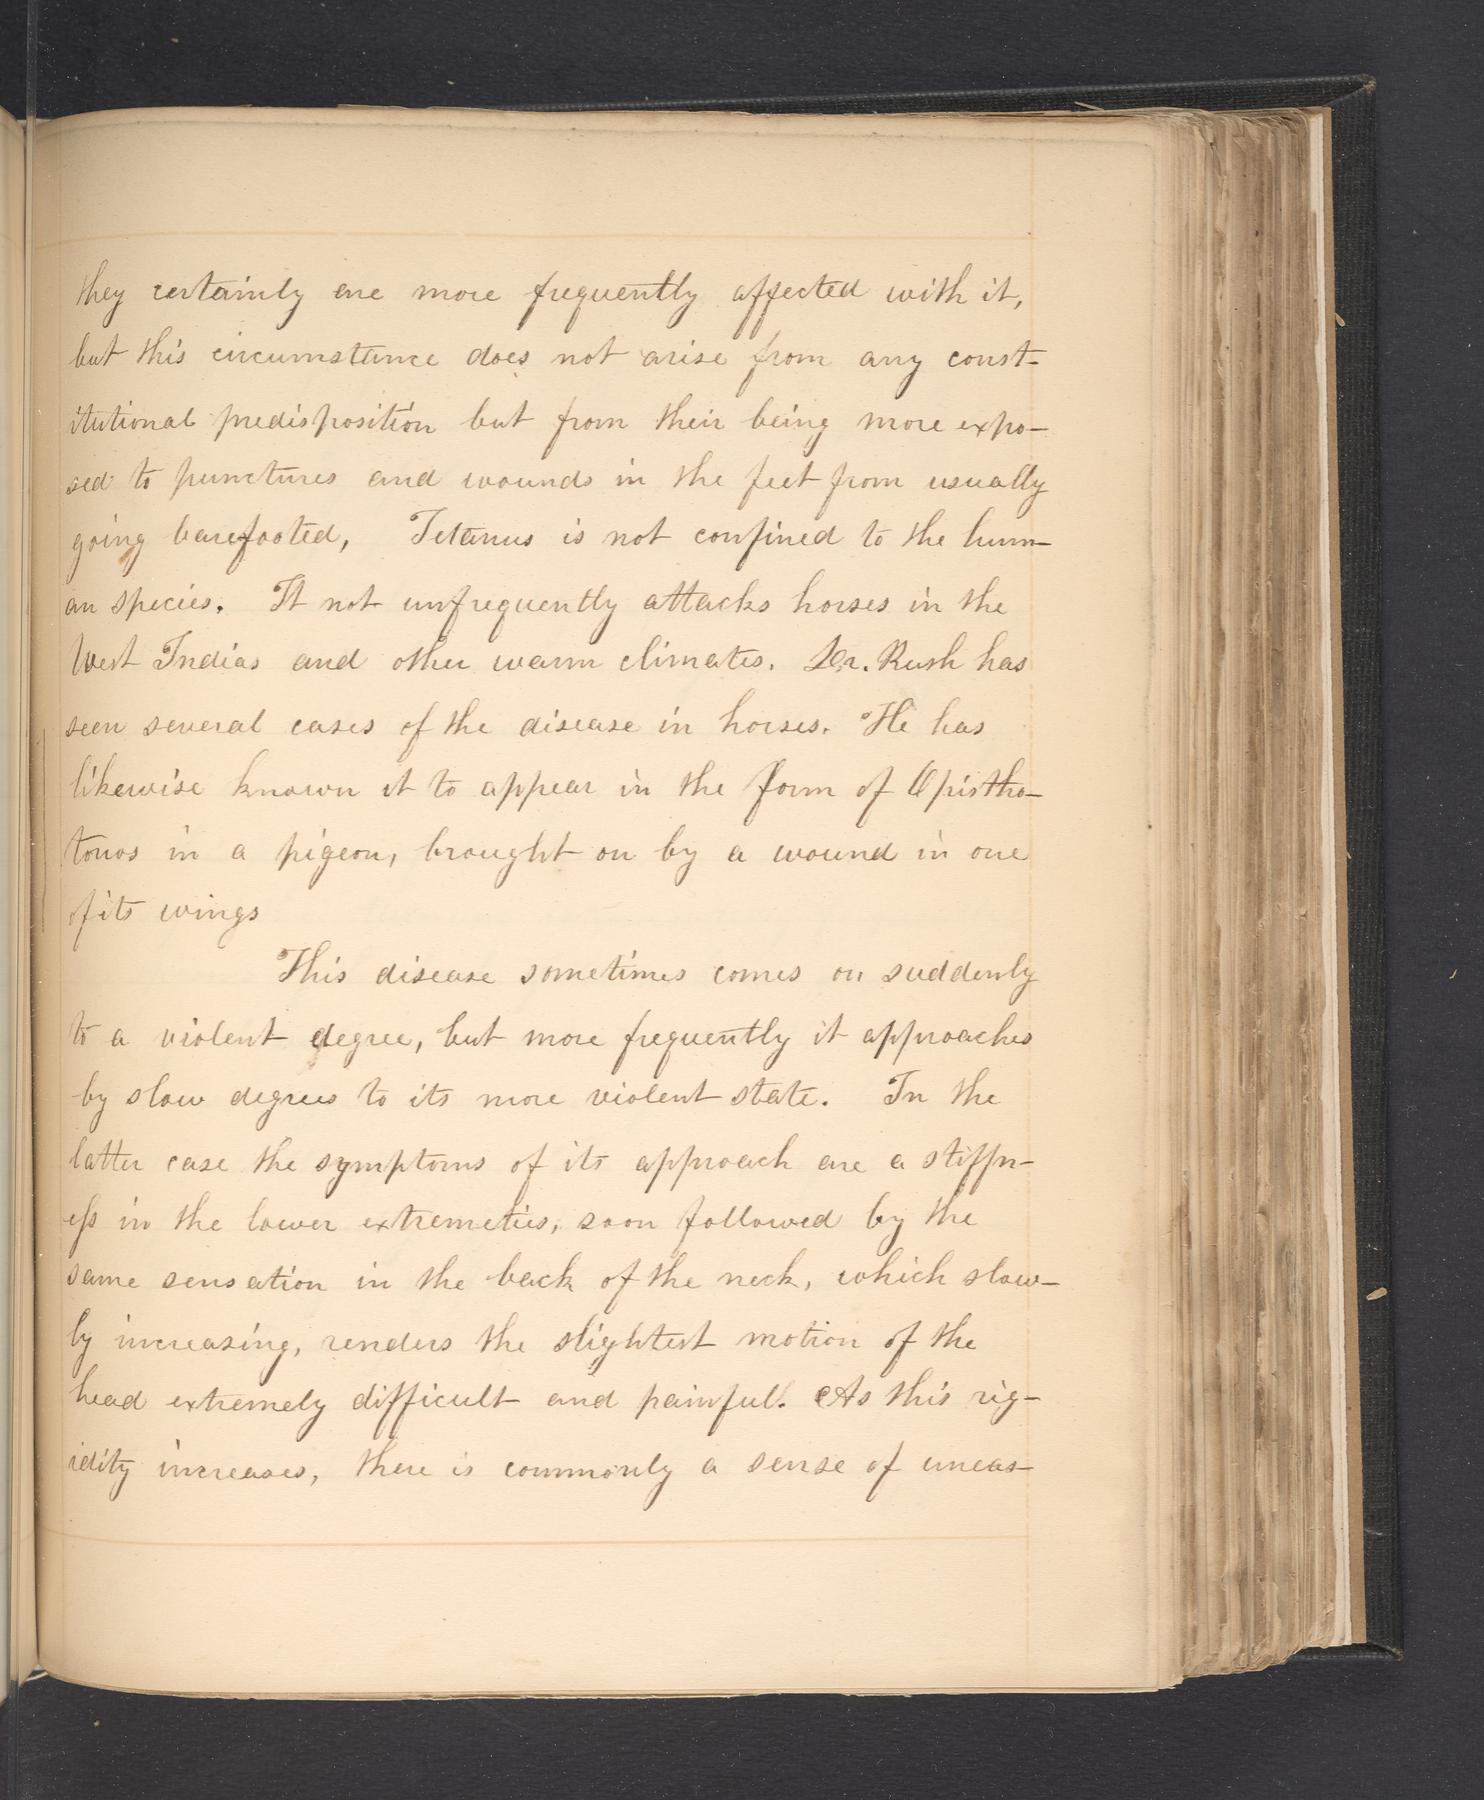 they certainly are more frequently affected with it,
but this circumstance does not arise from any const-
itutional predisposition but from their being more expo-
sed to punctures and wounds in the feet from usually
going barefooted, Tetanus is not confined to the hum-
an species. It not unfrequently attacks horses in the
West Indias and other warm climates. Dr. Rush has
seen several cases of the disease in horses. He has
likewise known it to appear in the form of Opistho-
tonos in a pigeon, brought on by a wound in one
of its wings
This disease sometimes comes on suddenly
to a violent degree, but more frequently it approaches
by slow degrees to its more violent state. In the
latter case the symptoms of its approach are a stiffn-
eſs in the lower extremeties, soon followed by the
same sensation in the back of the neck, which slow-
ly increasing, renders the slightest motion of the
head extremely difficult and painful. As this rig-
idity increases, there is commonly a sense of uneas-